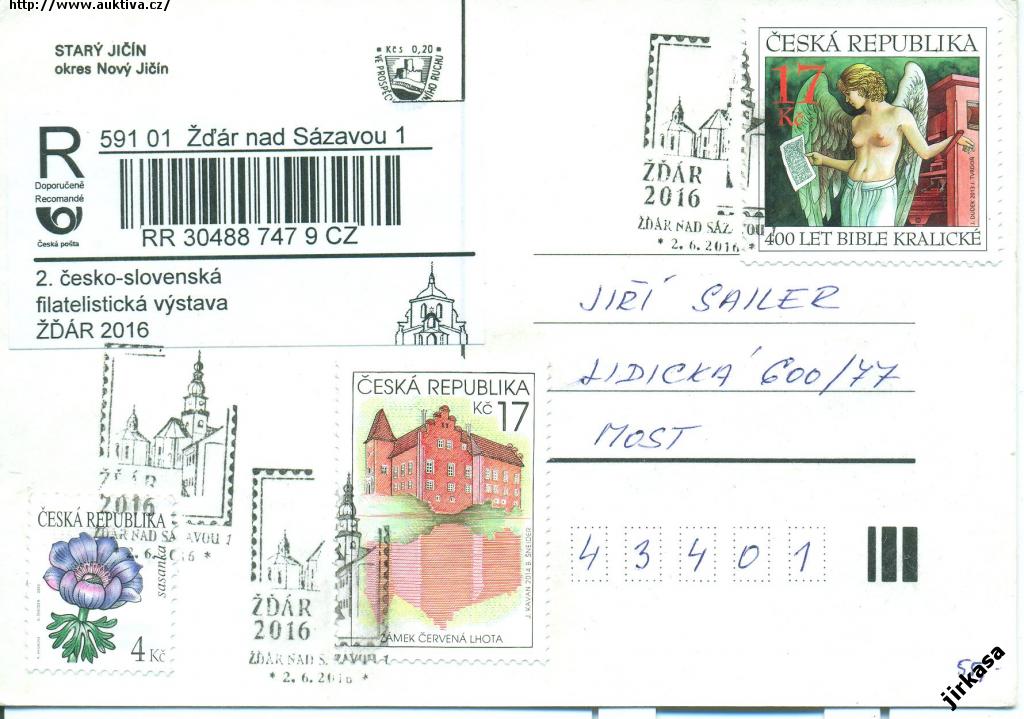 http://www.auktiva.cz/
STARÝ JIČÍN
okres Nový Jičín
Kčs 0,20
VE PROSPĚCH
NÍHO RUCHU
R
Doporučeně
Recomandé
Česká pošta
591 01 Žďár nad Sázavou 1
RR 30488 747 9 CZ
2. česko-slovenská
filatelistická výstava
ŽĎÁR 2016
ŽĎÁR
2016
ŽĎÁR NAD SÁZ OU
* 2.6.2016 *
ČESKÁ REPUBLIKA
17
Kč
J. DUDEK 2013 J. TVRDOŇ
400 LET BIBLE KRALICKÉ
JIŘÍ SAILER
LIDICKÁ 600/77
MOST
43401
ŽĎÁR
2016
ŽĎÁR NAD SÁZAVOU 1
2.6. 16 *
ČESKÁ REPUBLIKA
sasanka
4 Kč
ŽĎÁR
2016
ŽĎÁR NAD S ZAVOU 1
* 2.6.2016 *
ČESKÁ REPUBLIKA
Kč 17
J. KAVAN 2014 B. ŠNEIDER
ZÁMEK ČERVENÁ LHOTA
jirkasa